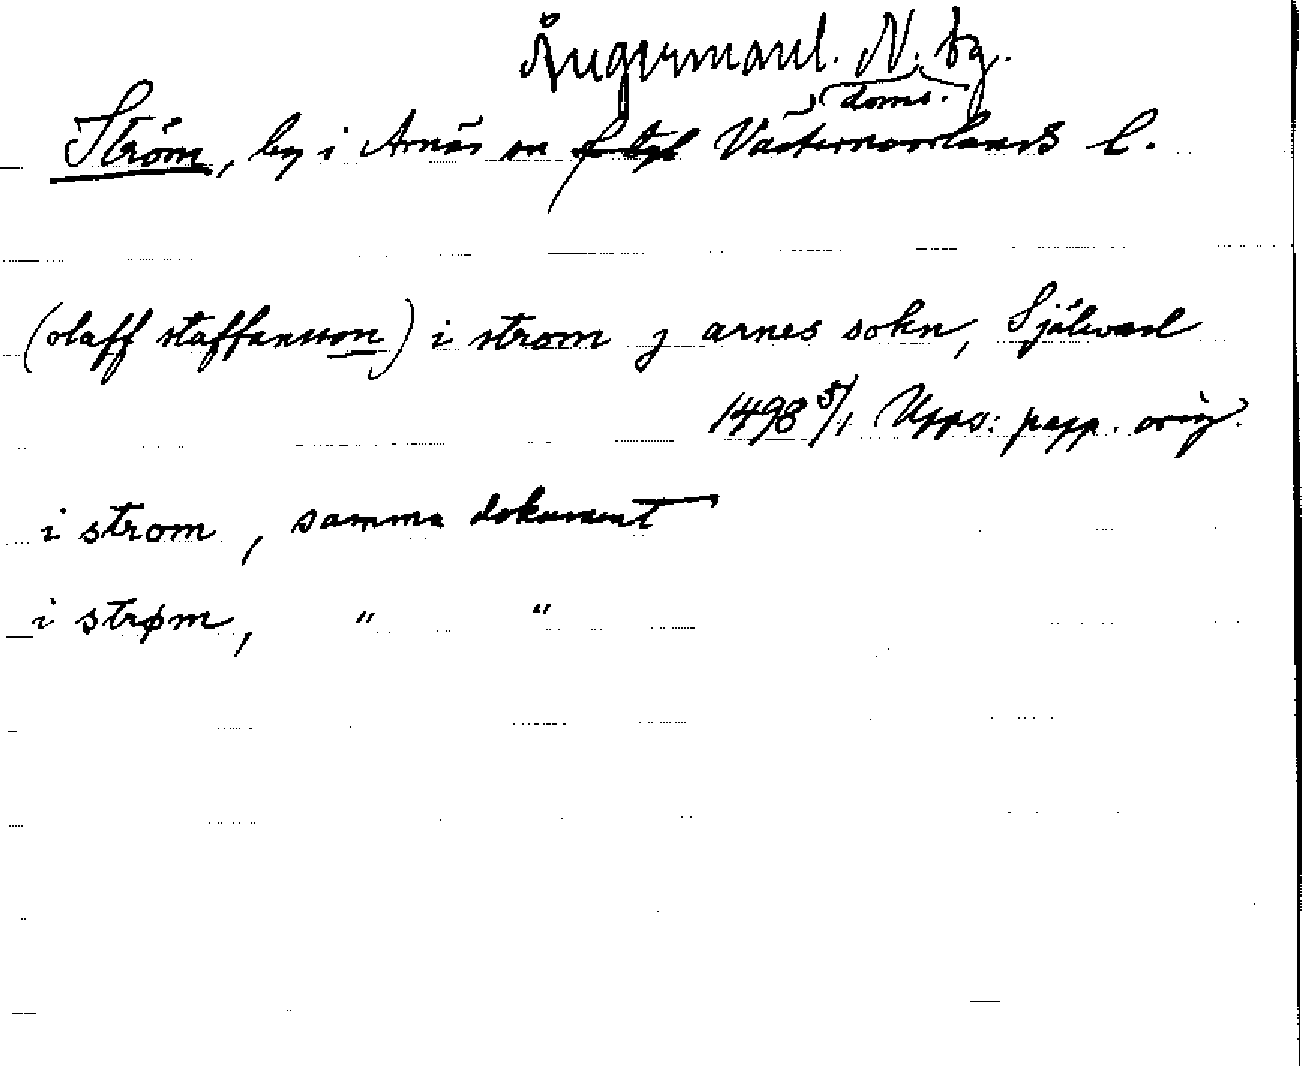 Ångermanl. N. tg.
doms.
Ström, by i Arnäs sn Västernorrlands l.
(olaff staffansson) i strom j arnes sokn, Själevad
1498 5/1 Upps. papp. orig.
i strom, samma dokument
i strøm, " "